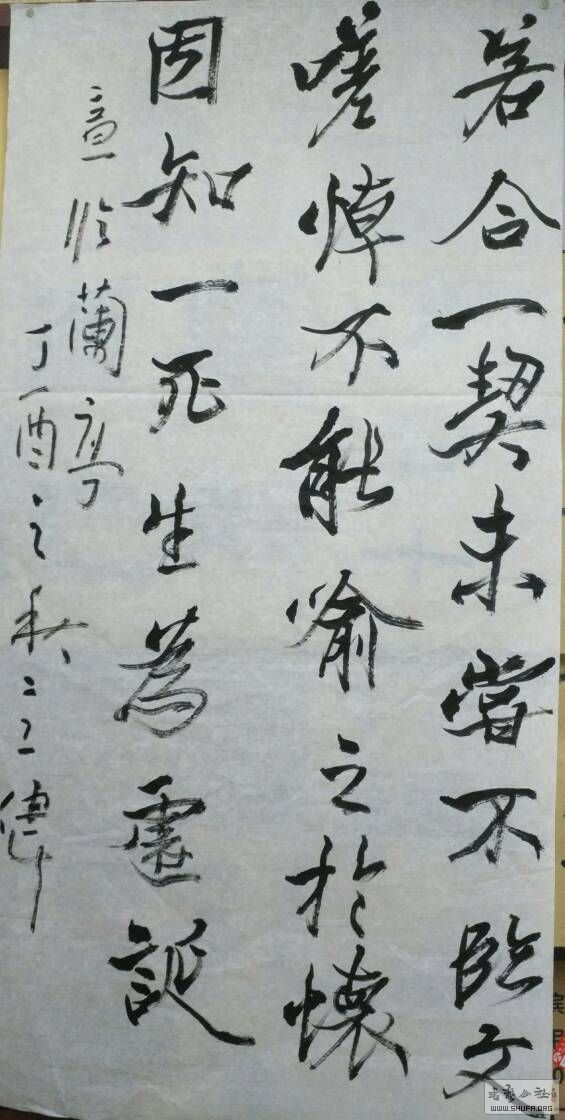 若合一契未嘗不臨文
嗟悼不能喻之於懷
固知一死生為虛誕
意臨蘭亭
丁酉之秋
公社
WWW.SHUFA.ORG